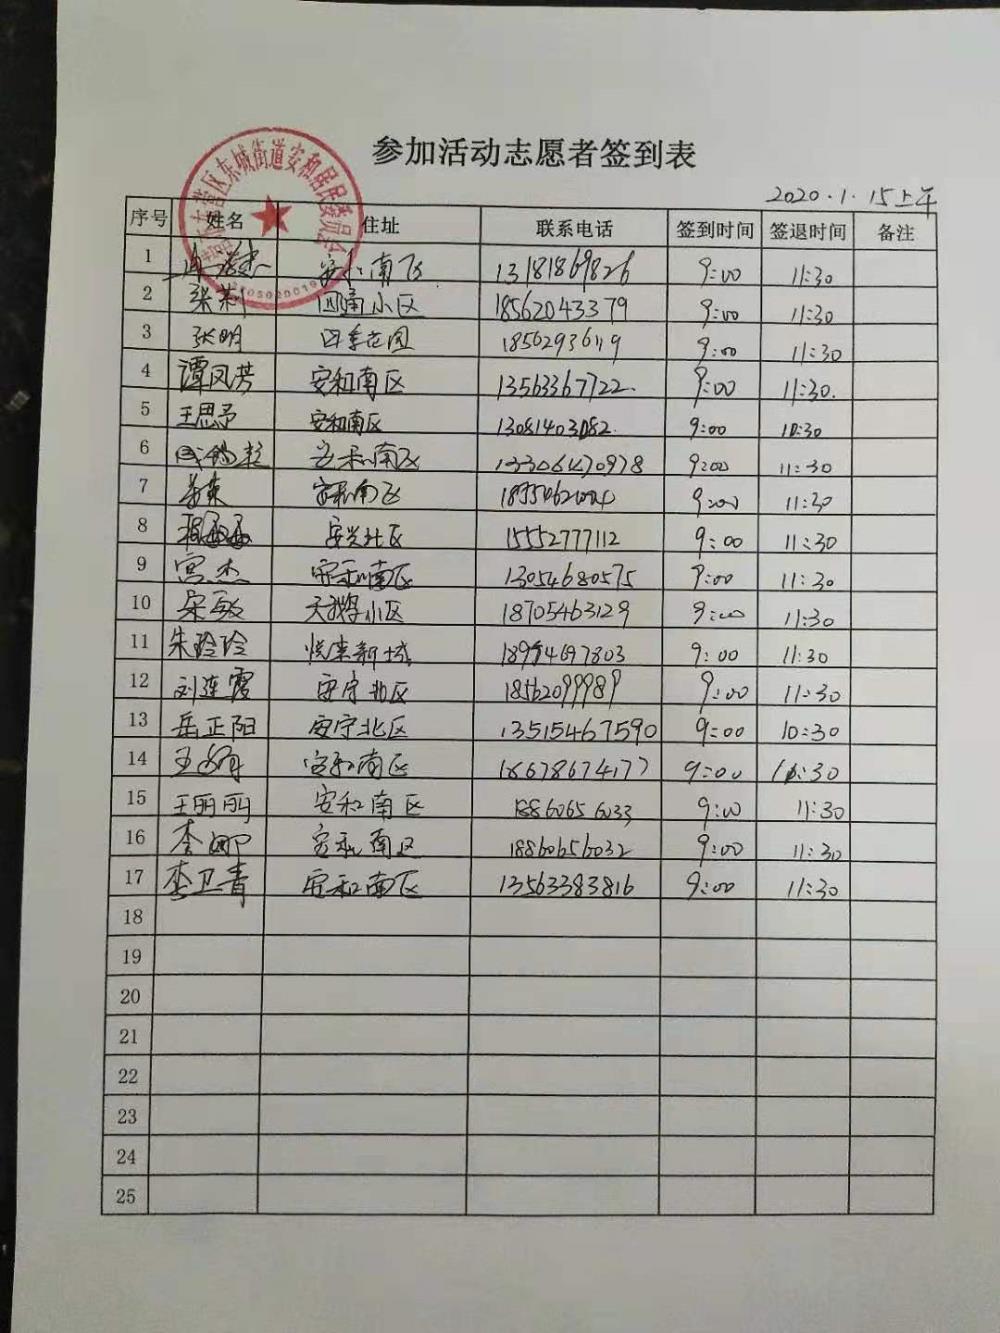 东城街道安和居民委员会
参加活动志愿者签到表
2020.1.15上午
序号 姓名 住址 联系电话 签到时间 签退时间 备注
1 安和南区 13181869826 9:00 11:30
2 张莉 四通小区 18562043379 9:00 11:30
3 张明 四季花园 18562936119 9:00 11:30
4 谭凤芳 安和南区 13563367722 9:00 11:30
5 王思予 安和南区 13081403082 9:00 11:30
6 安和南区 13306470978 9:00 11:30
7 安和南区 9:00 11:30
8 安兴社区 15552777112 9:00 11:30
9 宫杰 安和南区 13054680575 9:00 11:30
10 宋敏 天鹅小区 18705463129 9:00 11:30
11 朱玲玲 悦来新城 18954697803 9:00 11:30
12 刘连霞 安宁北区 18562099989 9:00 11:30
13 岳正阳 安宁北区 13515467590 9:00 10:30
14 安和南区 18678674177 9:00 11:30
15 王丽丽 安和南区 18860656033 9:00 11:30
16 李娜 安和南区 18860656032 9:00 11:30
17 李卫青 安和南区 13563383816 9:00 11:30
18
19
20
21
22
23
24
25